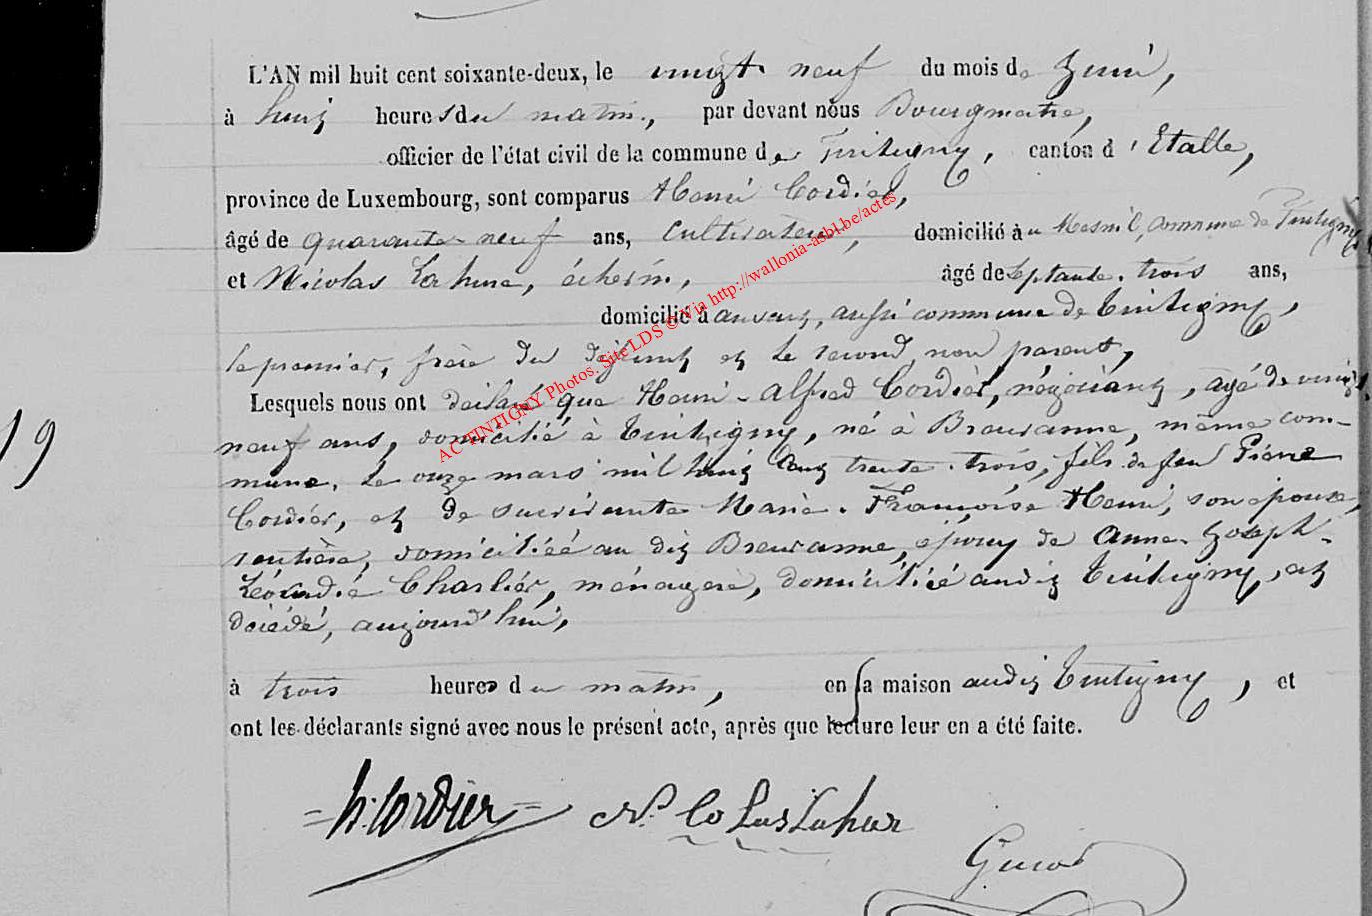 L'AN mil huit cent soixante-deux, le vingt neuf du mois de Juin,
à huit heures du matin, par devant nous Bourgmestre,
officier de l'état civil de la commune de Tintigny, canton d'Etalle,
province de Luxembourg, sont comparus Henri Cordier,
âgé de quarante-neuf ans, cultivateur, domicilié à Mesnil, commune de Tintigny
et Nicolas Lahure, échevin, âgé de septante-trois ans,
domicilié à ansart, aussi commune de Tintigny,
le premier, frère du défunt et le second, non parent,
Lesquels nous ont déclaré que Henri-Alfred Cordier, négociant, âgé de vingt
neuf ans, domicilié à Tintigny, né à Breuvanne, même com-
mune, le onze mars mil huit cent trente-trois, fils de feu Pierre
Cordier, et de survivante Marie-Françoise Henri, son épouse,
rentière, domiciliée au dit Breuvanne, époux de Anne-Joseph-
Léocadie Charlier, ménagère, domiciliée audit Tintigny, est
décédé, aujourd'hui,
19
à trois heures du matin, en sa maison audit Tintigny, et
ont les déclarants signé avec nous le présent acte, après que lecture leur en a été faite.
h. Cordier Nicolas Lahur
AC TINTIGNY Photos. Site LDS © Via http://wallonia-asbl.be/actes